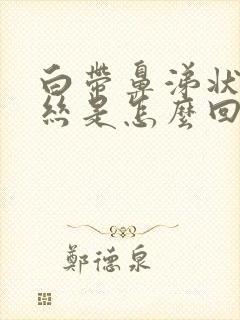 白帶鼻涕狀
絲是怎麼回
鄭德泉